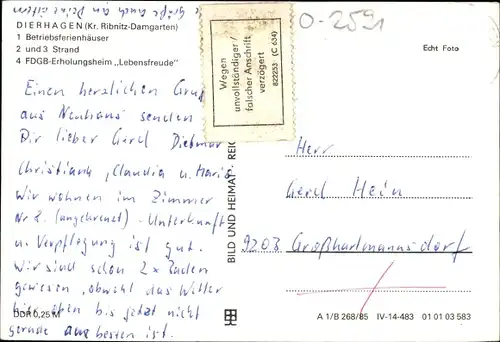 DIERHAGEN (Kr. Ribnitz-Damgarten)
1 Betriebsferienhäuser
2 und 3 Strand
4 FDGB-Erholungsheim „Lebensfreude"
Einen herzlichen Gruß
aus Neuhaus senden
Dir lieber Gerd Dietmar
Christiane, Claudia u. Mario
Wir wohnen im Zimmer
Nr 8. (angekreuzt) - Unterkunft
u. Verpflegung ist gut.
Wir sind schon 2x Baden
gewesen, obwohl das Wetter
hier oben bis jetzt nicht
gerade am besten ist.
DDR 0,25 M
Wegen
unvollständiger/
falscher Anschrift
verzögert
822253 (C 634)
BILD UND HEIMAT REIC
O-2591
Echt Foto
Herr
Gerd Hein
9203 Großhartmannsdorf
A 1/B 268/85 IV-14-483 01 01 03 583